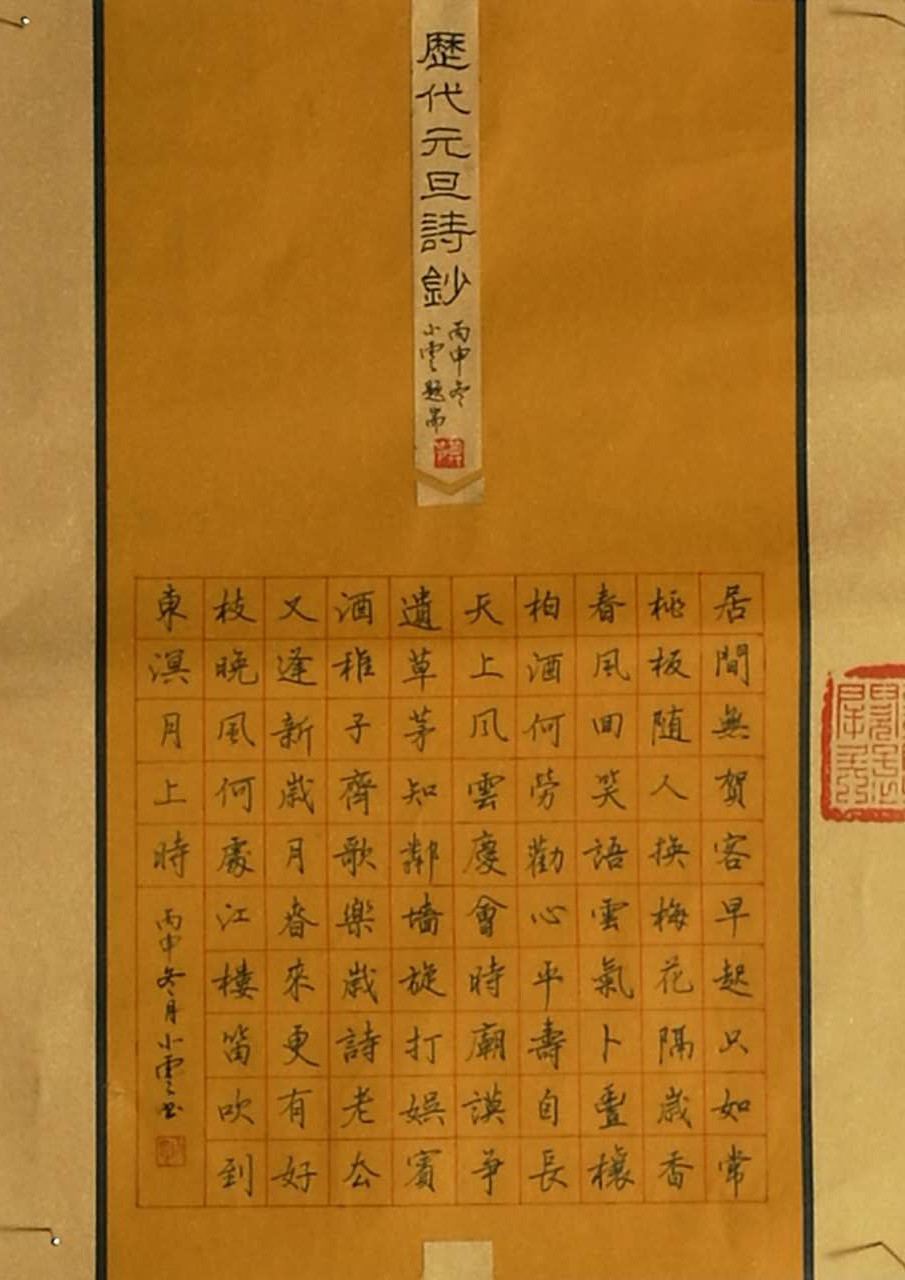 歷代元旦詩鈔
丙申冬
小雲題耑
居間無賀客早起只如常
桃板随人换梅花隔歲香
春風回笑語雲氣卜豐穰
柏酒何勞勸心平壽自長
天上风雲慶會時廟謨爭
遺草茅知鄰墻旋打娯賓
酒稚子齊歌樂歲詩老厺
又逢新歲月春來更有好
枝晚風何處江樓笛吹到
東溟月上時
丙申冬月小雲書